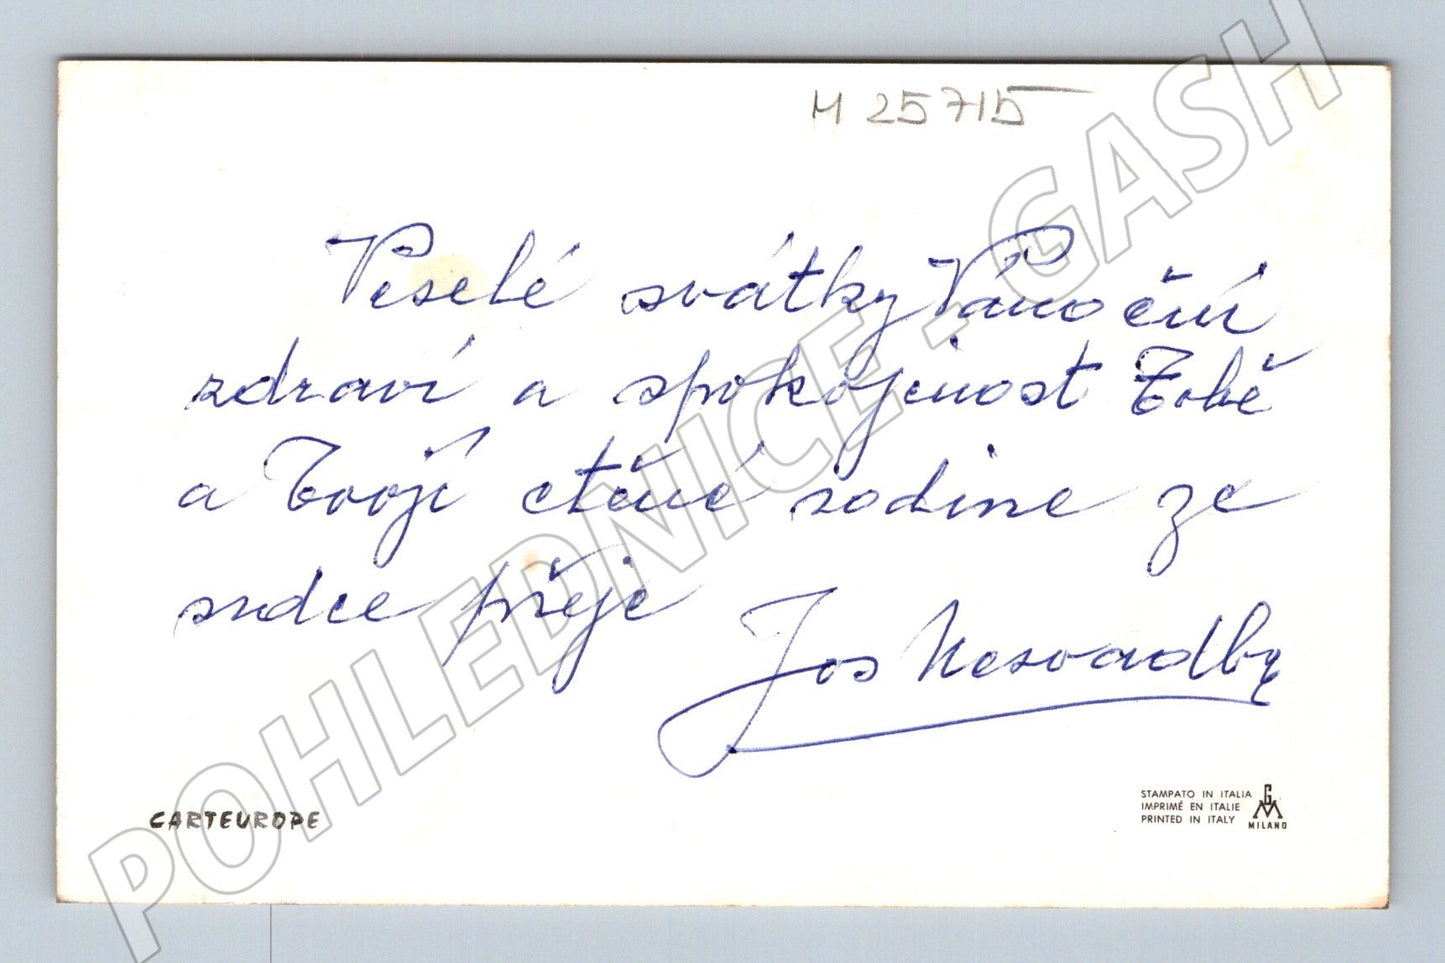 M 25715
Veselé svátky Vánoční
zdraví a spokojenost Tobě
a Tvojí ctěné rodine ze
srdce přeje
Jos Nesvadby
CARTEUROPE
STAMPATO IN ITALIA
IMPRIMÉ EN ITALIE
PRINTED IN ITALY
GM
MILANO
POHLEDNICE - GASH